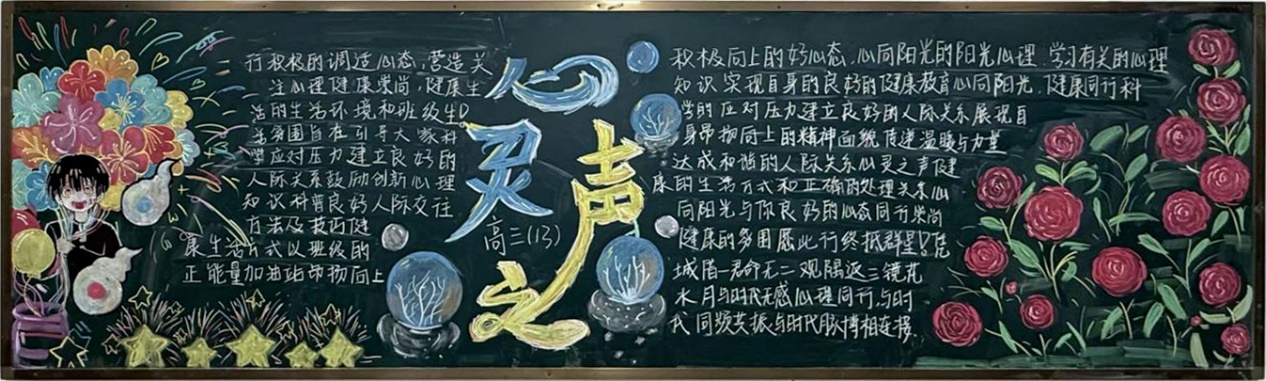 行积极的调适心态,营造关
注心理健康崇尚,健康生
活的生活环境和班级生
活氛围旨在引导大家科
学应对压力建立良好的
人际关系鼓励创新心理
知识科普良好人际交往
方法及技巧健
康生活方式以班级的
正能量加油站昂扬向上
心灵之声
高三(13)
积极向上的好心态,心向阳光的阳光心理.学习有关的心理
知识实现自身的良好的健康教育心向阳光,健康同行科
学的应对压力建立良好的人际关系展现自
身昂扬向上的精神面貌传递温暖与力量
达成和谐的人际关系心灵之声健
康的生活方式和正确的处理关系心
向阳光与你良好的心态同行崇尚
健康的氛围愿此行终抵群星
城陷一君命无二观隔远三镜花
水月与时代无感心理同行,与时
代同频共振与时代脉搏相连接.